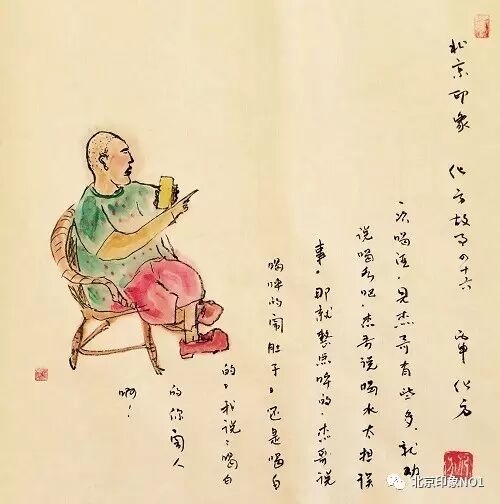 北京印象 化方故事の十六 丙申 化方
一次喝酒，见杰哥有些多，就劝
说喝水吧，杰哥说喝水太担误
事，那就整点啤的，杰哥说
喝啤的闹肚子，还是喝白
的，我说：喝白
的你闹人
啊！
北京印象NO1